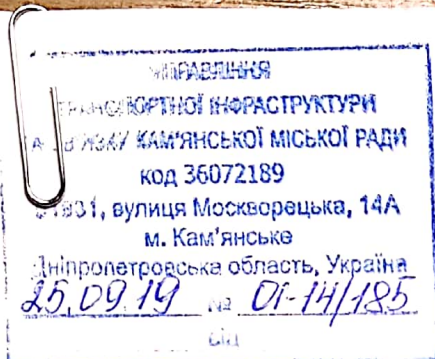 УПРАВЛІННЯ
ТРАНСПОРТНОЇ ІНФРАСТРУКТУРИ
ТА ЗВ'ЯЗКУ КАМ'ЯНСЬКОЇ МІСЬКОЇ РАДИ
код 36072189
вулиця Москворецька, 14А
м. Кам'янське
Дніпропетровська область, Україна
25.09.19 № 01-14/185
від